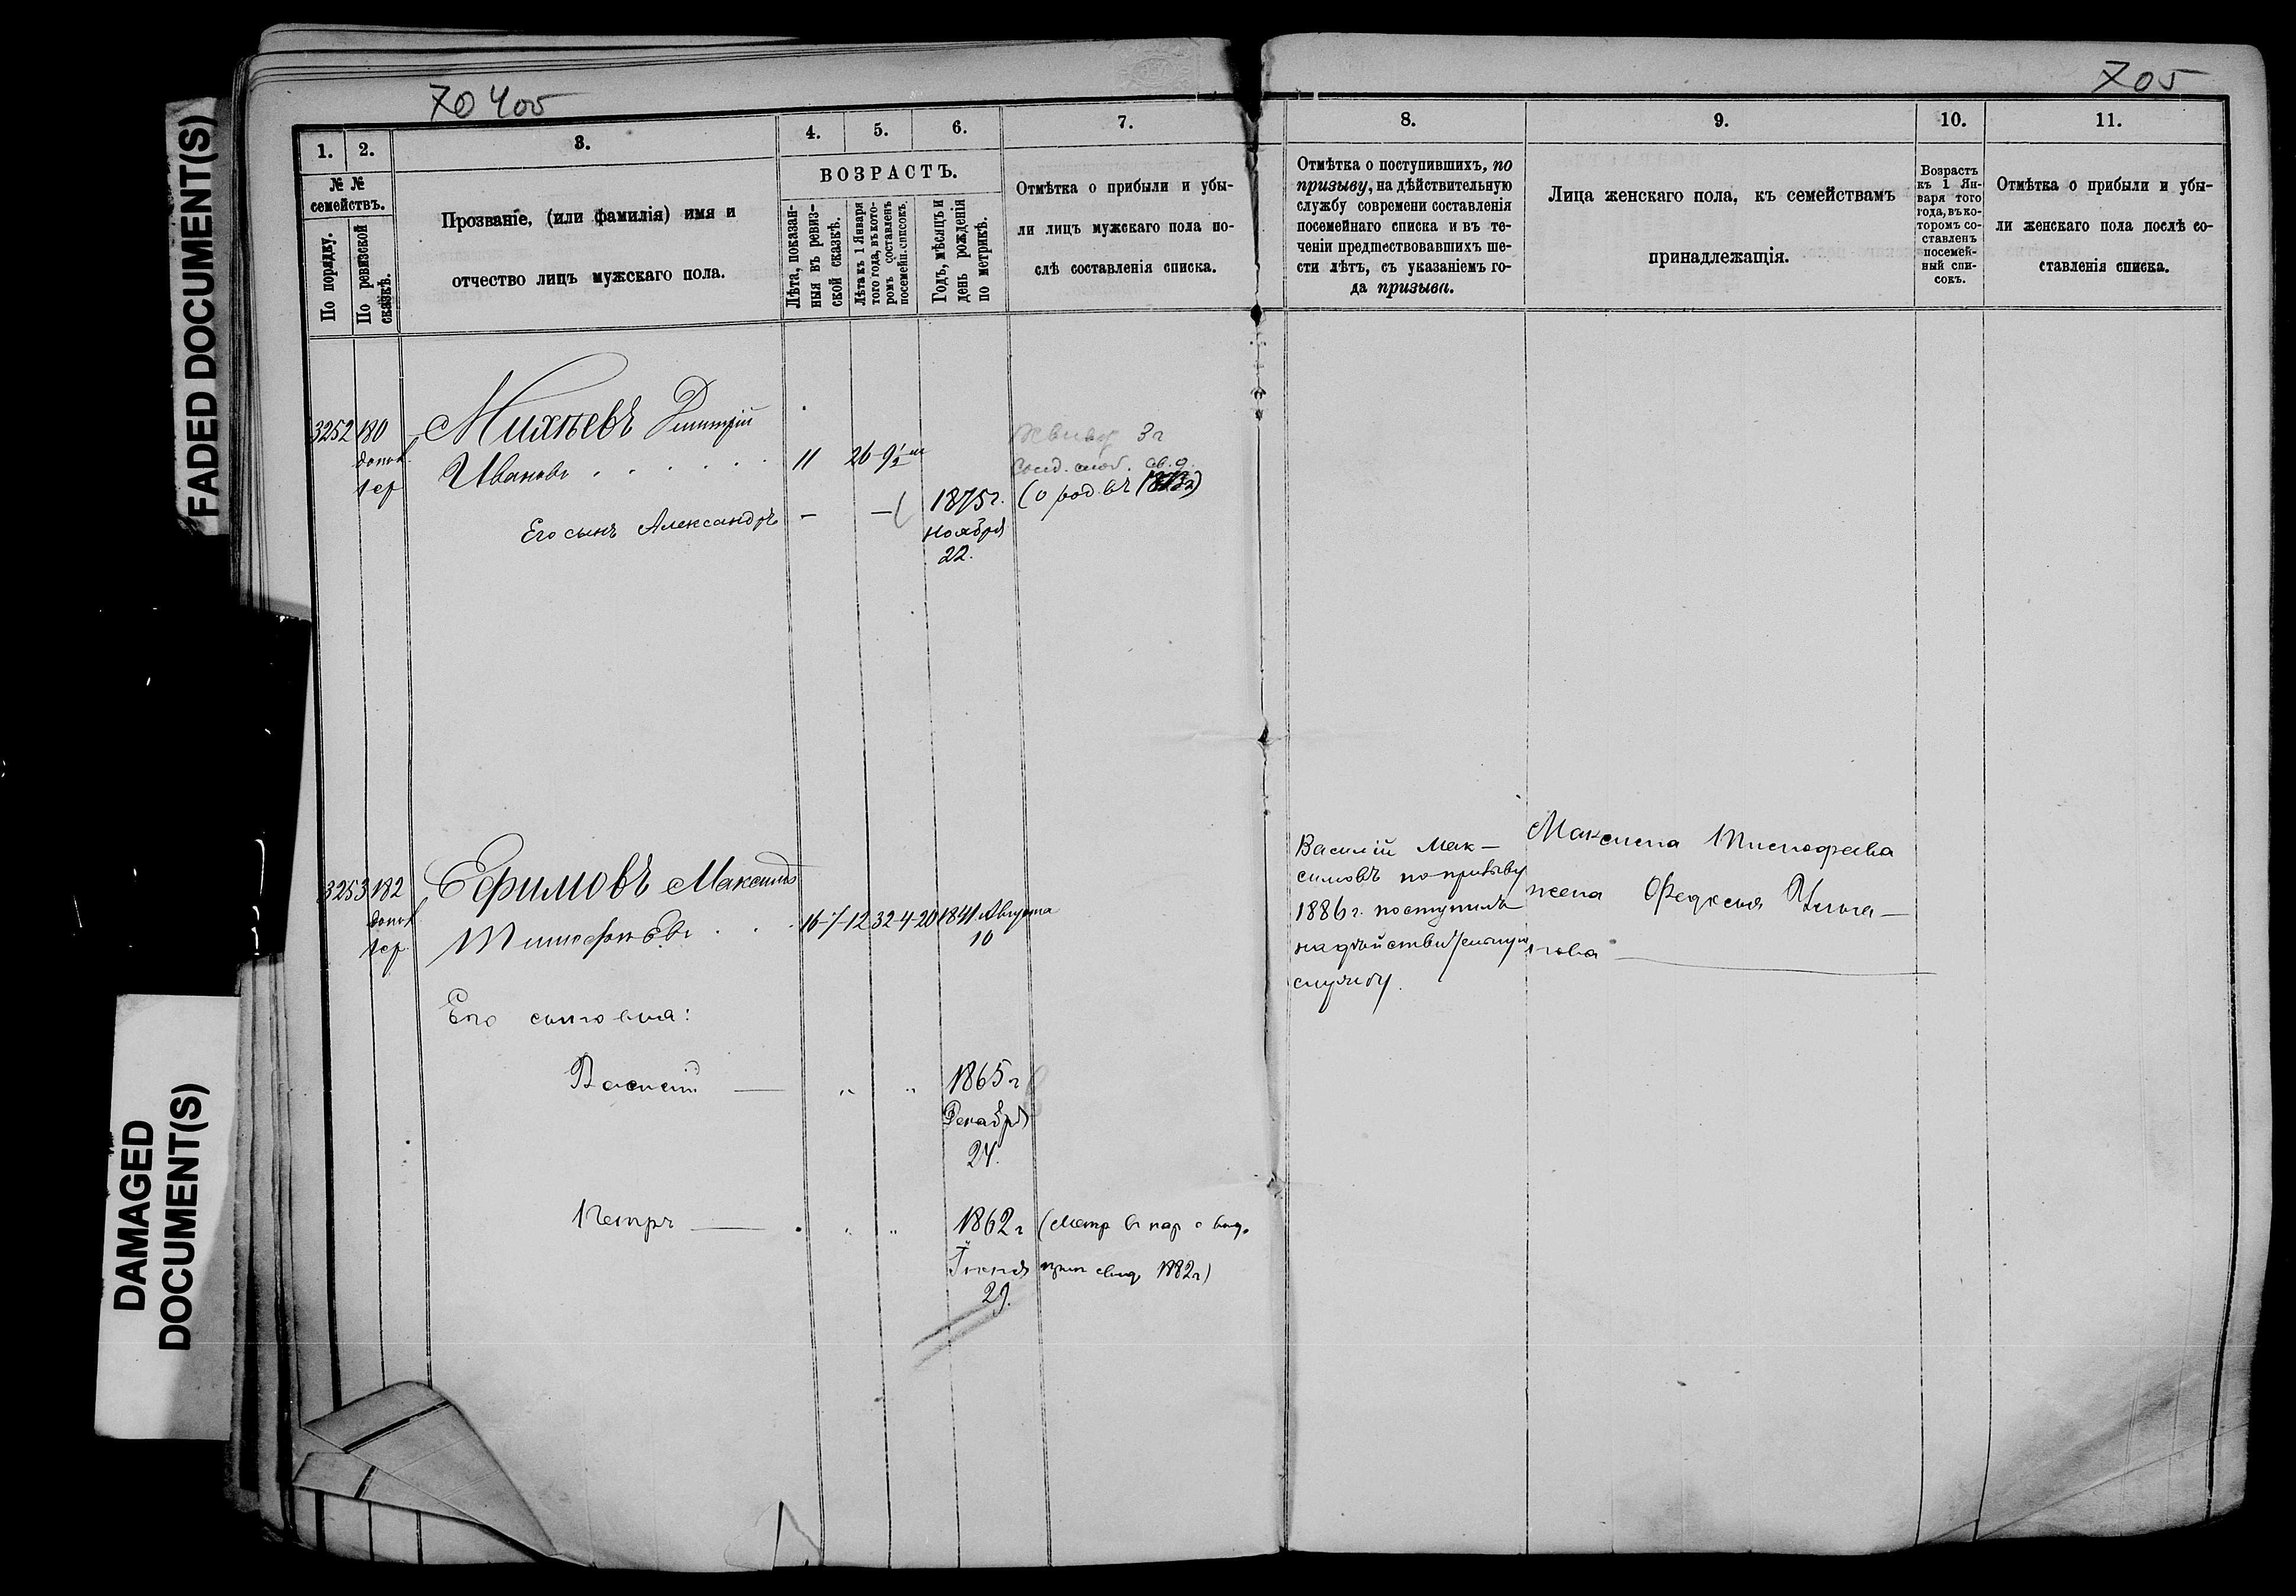 FADED DOCUMENT(S)
DAMAGED
DOCUMENT(S)
705
1.
2.
3.
4.
5.
6.
7.
8.
9.
10.
11.
№ №
семействъ.
По порядку.
По ревизской
сказкѣ.
Прозваніе, (или фамилія) имя и
отчество лицъ мужскаго пола.
ВОЗРАСТЪ.
Лѣта, показан-
ныя въ ревиз-
ской сказкѣ.
Лѣта къ 1 Января
того года, въ кото-
ромъ составленъ
посемейн. списокъ.
Годъ, мѣсяцъ и
день рожденія
по метрикѣ.
Отмѣтка о прибыли и убы-
ли лицъ мужскаго пола по-
слѣ составленія списка.
Отмѣтка о поступившихъ, по
призыву, на дѣйствительную
службу современи составленія
посемейнаго списка и въ те-
ченіи предшествовавшихъ ше-
сти лѣтъ, съ указаніемъ го-
да призыва.
Лица женскаго пола, къ семействамъ
принадлежащія.
Возрастъ
къ 1 Ян-
варя того
года, въ ко-
торомъ со-
ставленъ
посемей-
ный спи-
сокъ.
Отмѣтка о прибыли и убы-
ли женскаго пола послѣ со-
ставленія списка.
3252 180 Михѣевъ Дмитрій
Ивановъ 11 26-9½ м
Его сынъ Александръ — — 1875 г. (о род въ
ноября
22.
3253 182 Ефимовъ Максимъ
Тимофѣевъ 16-7-12 32-4-20 1841 Августа
10
Его сыновья:
Василій — 1865 г
Декабря
24.
Петръ — 1862 г
Іюня 1882 г)
29.
Василій Мак-
симовъ по призыву
1886 г. поступилъ
на дѣйствительную
службу.
Максима Тимофеева
жена Федосья